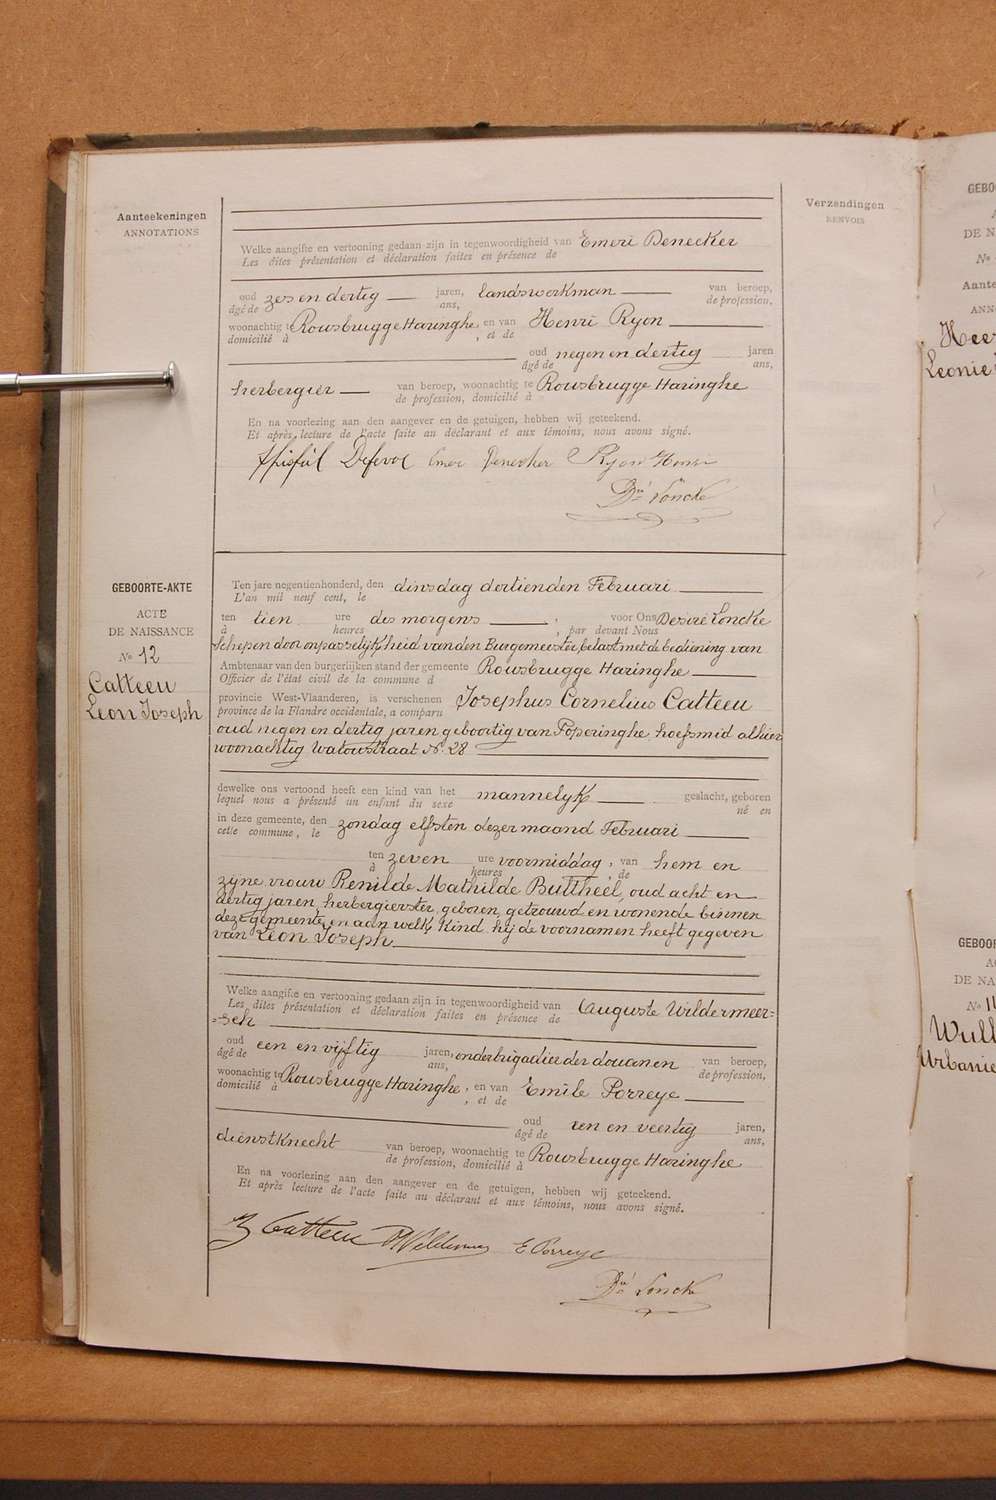 Aanteekeningen
ANNOTATIONS
Verzendingen
RENVOIS
Welke aangifte en vertooning gedaan zijn in tegenwoordigheid van Emeri Denecker
Les dites présentation et déclaration faites en présence de
oud zes en dertig jaren, landswerkman van beroep,
âgé de ans, de profession,
woonachtig te Rousbrugge Haringhe, en van Henri Ryon
domicilié à , et de
oud negen en dertig jaren
âgé de ans,
herbergier van beroep, woonachtig te Rousbrugge Haringhe
de profession, domicilié à
En na voorlezing aan den aangever en de getuigen, hebben wij geteekend.
Et après lecture de l'acte faite au déclarant et aux témoins, nous avons signé.
Defevre Emer Denecker Ryon Henri
Dré Loncke
GEBOORTE-AKTE
ACTE
DE NAISSANCE
No 12
Catteeu
Leon Joseph
Ten jare negentienhonderd, den dinsdag dertienden Februari
L'an mil neuf cent, le
ten tien ure des morgens , voor Ons Desiré Loncke
à heures , par devant Nous
Schepen door onpasselijkheid van den Burgemeester belast met de bediening van
Ambtenaar van den burgerlijken stand der gemeente Rousbrugge Haringhe
Officier de l'état civil de la commune d
provincie West-Vlaanderen, is verschenen Josephus Cornelius Catteeu
province de la Flandre occidentale, a comparu
oud negen en dertig jaren geboortig van Poperinghe, hoefsmid alhier
woonachtig Watoustraat No 28
dewelke ons vertoond heeft een kind van het mannelyk geslacht, geboren
lequel nous a présenté un enfant du sexe né en
in deze gemeente, den zondag elfsten dezer maand Februari
cette commune, le
ten zeven ure voormiddag, van hem en
à heures de
zyne vrouw Renilde Mathilde Buttheel, oud acht en
dertig jaren, herbergierster, geboren, getrouwd en wonende binnen
deze gemeente, en aan welk kind hij de voornamen heeft gegeven
van Leon Joseph
Welke aangifte en vertooning gedaan zijn in tegenwoordigheid van Auguste Wildermeer=
Les dites présentation et déclaration faites en présence de
=sch
oud een en vijftig jaren, onderbrigadier der douanen van beroep,
âgé de ans, de profession,
woonachtig te Rousbrugge Haringhe, en van Emile Porreye
domicilié à , et de
oud een en veertig jaren,
âgé de ans,
dienstknecht van beroep, woonachtig te Rousbrugge Haringhe
de profession, domicilié à
En na voorlezing aan den aangever en de getuigen, hebben wij geteekend.
Et après lecture de l'acte faite au déclarant et aux témoins, nous avons signé.
J Catteeu E Porreye
Dré Loncke
GEBO
DE N
No
Aante
ANN
Heer
Leonie
GEBOOR
AC
DE NA
No 1
Wull
Urbanie